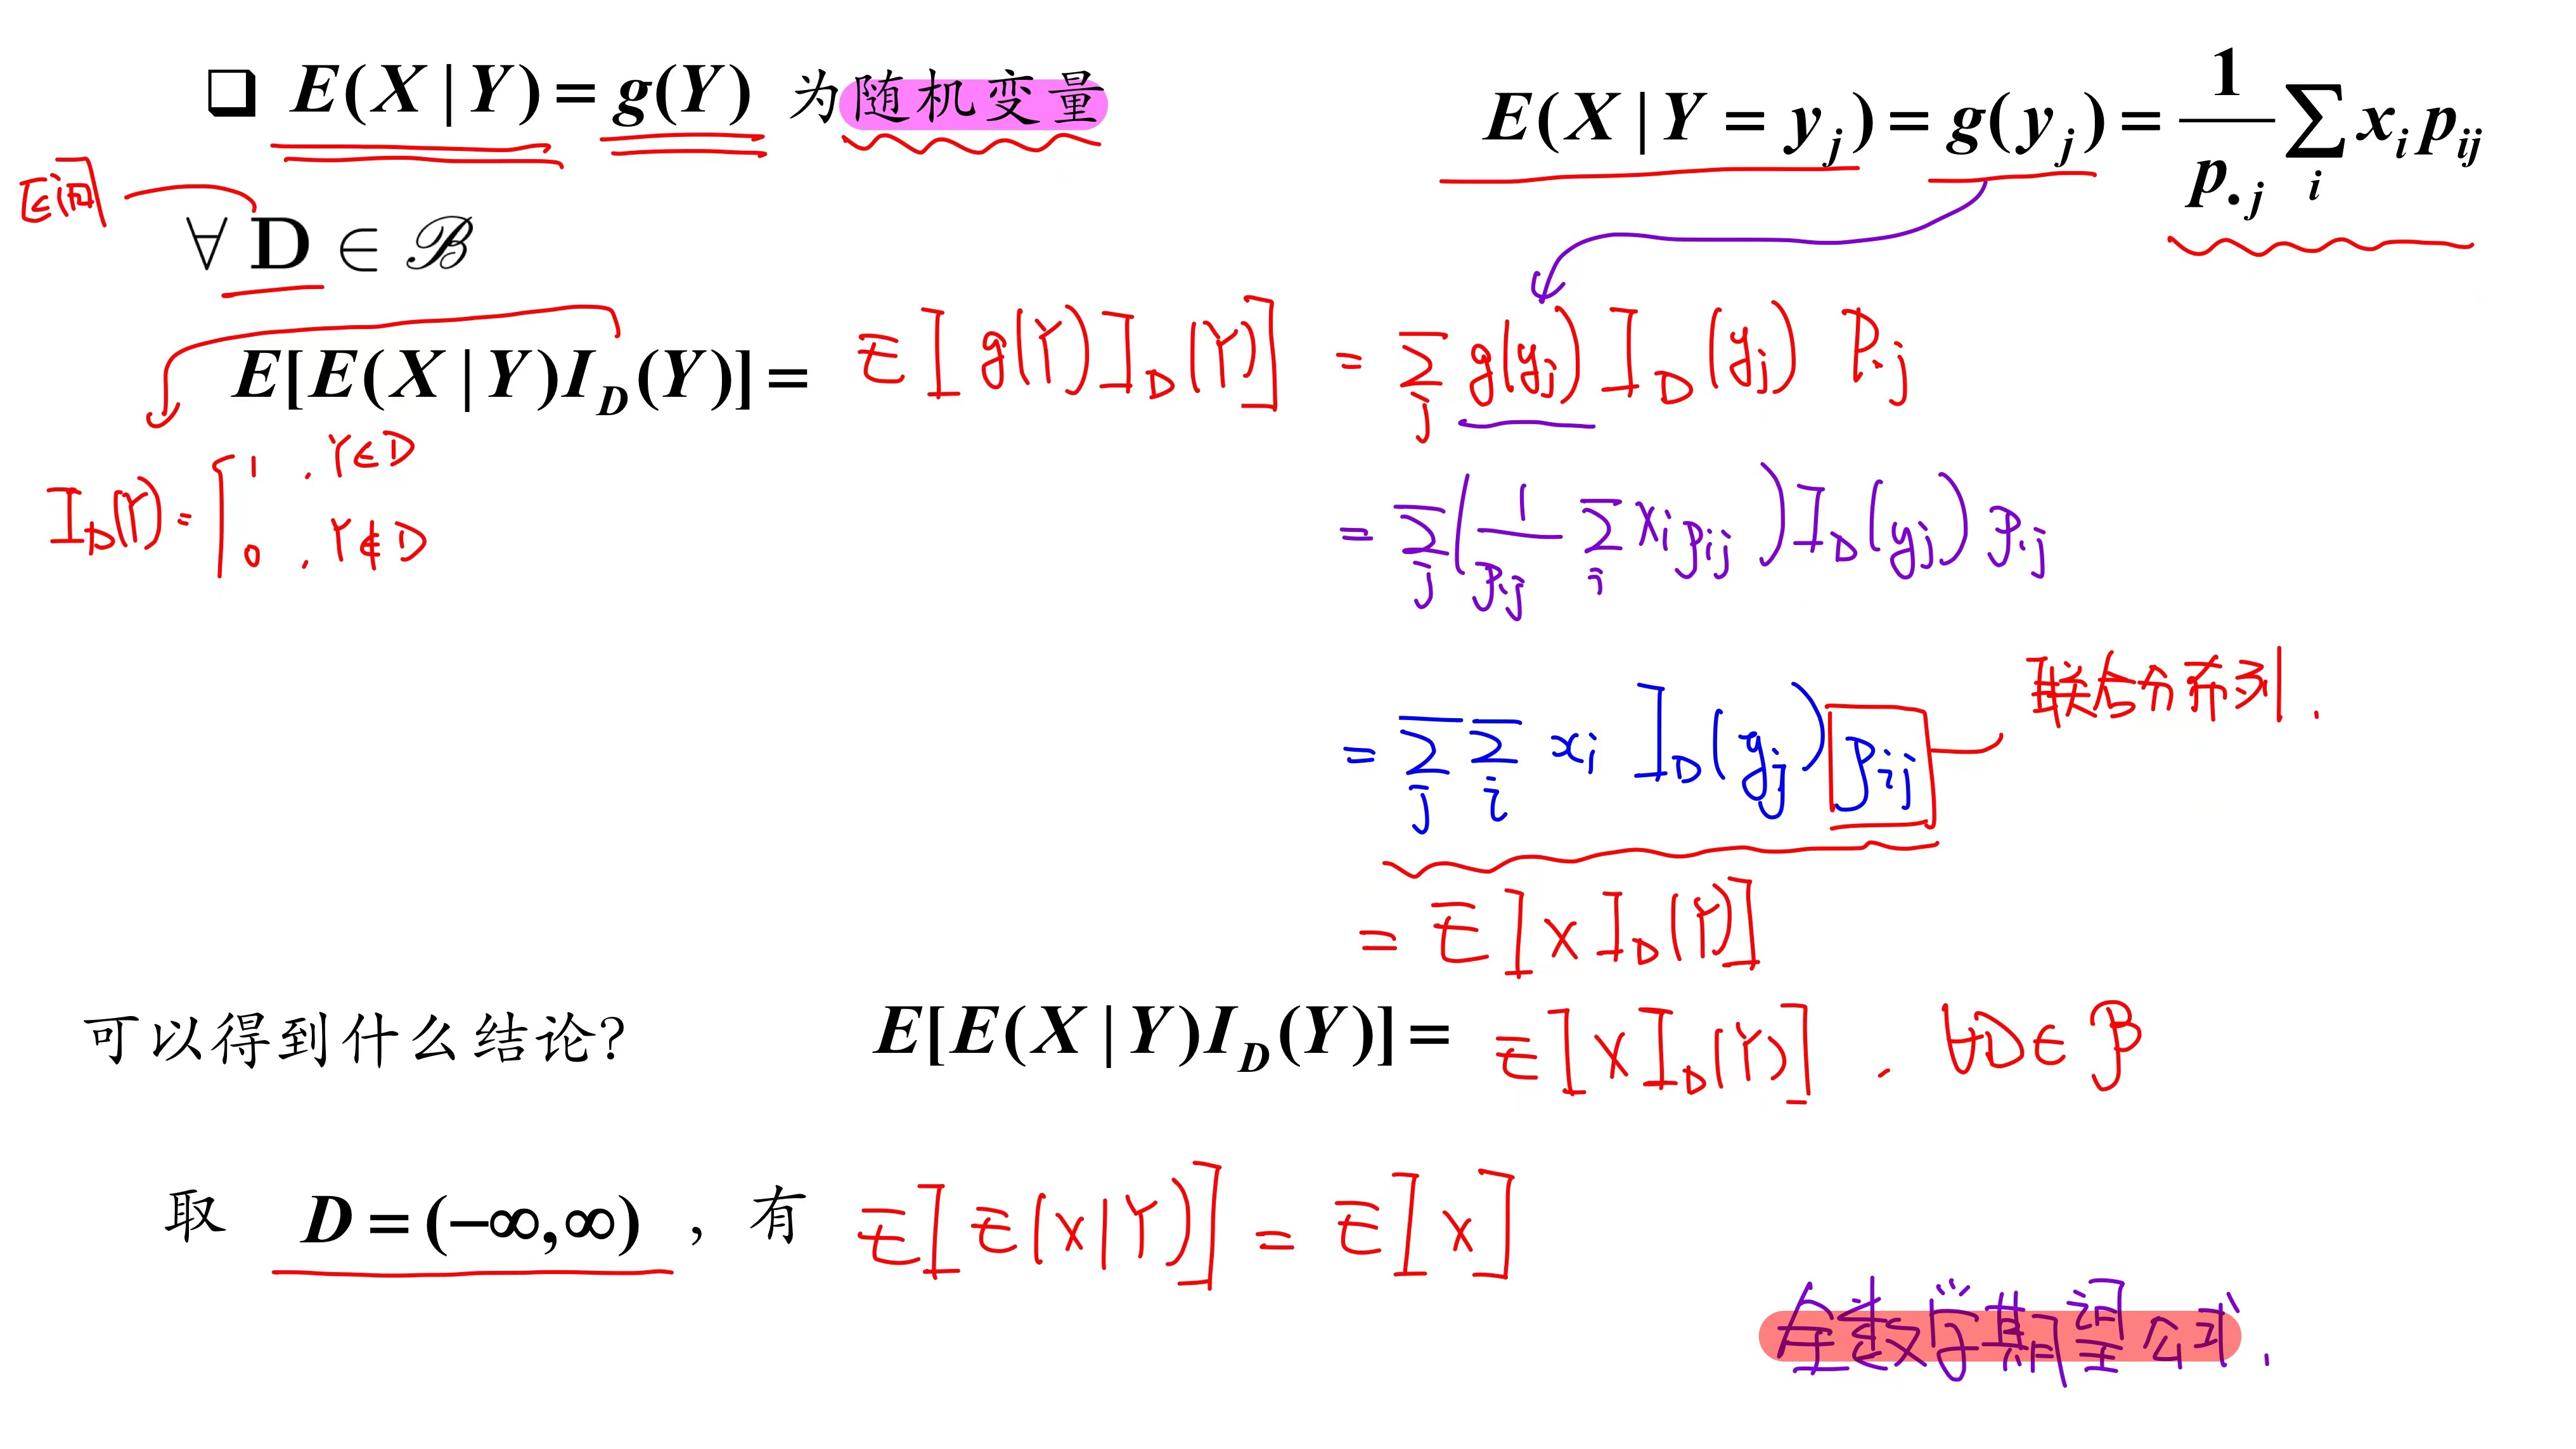 ❑ E(X|Y) = g(Y) 为随机变量
E(X|Y = y_j) = g(y_j) = \frac{1}{p_{·j}} \sum_i x_i p_{ij}
区间
∀ D ∈ ℬ
E[E(X|Y)I_D(Y)] = E[g(Y)I_D(Y)] = \sum_j g(y_j) I_D(y_j) P_{·j}
I_D(Y) = { 1 , Y∈D
0 , Y∉D
= \sum_j (\frac{1}{p_{·j}} \sum_i x_i p_{ij}) I_D(y_j) p_{·j}
= \sum_j \sum_i x_i I_D(y_j) p_{ij}
联合分布列.
= E[X I_D(Y)]
可以得到什么结论? E[E(X|Y)I_D(Y)] = E[X I_D(Y)] , ∀D∈ℬ
取 D = (−∞,∞) , 有 E[E(X|Y)] = E[X]
全数学期望公式.